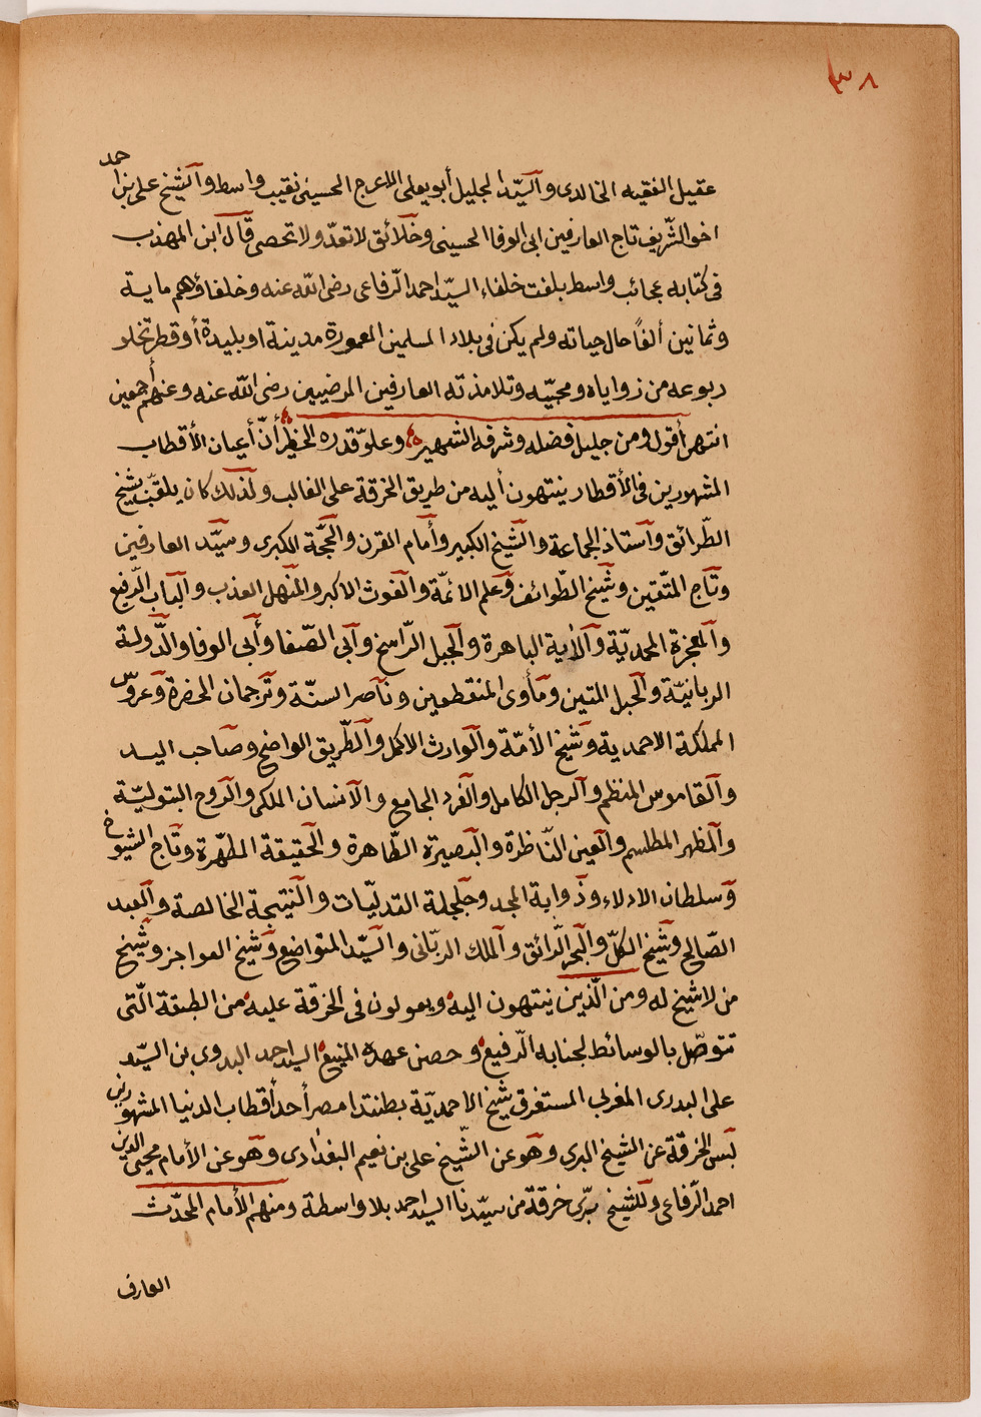 ٣٨
عقيل الفقيه الخالدى والسيّد الجليل أبو يعلى الاعرج الحسينى نقيب واسط والشيخ على بن احمد
اخو الشّريف تاج العارفين ابى الوفا الحسينى وخلائق لا تعدّ ولا تحصى قال ابن المهذب
فى كتابه عجائب واسط بلغت خلفاء السيّد احمد الرّفاعى رضى الله عنه وخلفاؤهم ماية
وثمانين ألفًا حال حياته ولم يكن فى بلاد المسلمين المعمورة مدينة او بليدة أو قطر تخلو
ربوعه من زواياه ومحبّيه وتلامذته العارفين المرضيين رضى الله عنه وعنهم أجمعين
انتهى أقول ومن جليل فضله وشرفه الشهير وعلوّ قدره الخطير أنّ أعيان الأقطاب
المشهورين فى الأقطار ينتهون أليه من طريق الخرقة على الغالب ولذلك كان يلقّب بشيخ
الطّرائق وأستاذ الجماعة والشّيخ الكبير وأمام القرن والحجّة الكبرى وسيّد العارفين
وتاج المتّقين وشيخ الطّوائف وعلم الائمّة والغوث الاكبر والمنهل العذب والباب الرّفيع
والمعجزة المحمديّة والآية الباهرة والجبل الرّاسخ وأبى الصّفا وأبى الوفا والدّولة
الربانيّة والحبل المتين ومأوى المنقطعين وناصر السنّة وترجمان الحضرة وعروس
المملكة الاحمدية وشيخ الأمّة والوارث الاكمل والطّريق الواضح وصاحب اليد
والقاموس المنظم والرجل الكامل والفرد الجامع والأنسان الملكى والروح البتوليّة
والمظهر المطلسم والعين النّاظرة والبصيرة الطّاهرة والحقيقة المطهّرة وتاج الشيوخ
وسلطان الادلاء وذوابة المجد وجلجلة القدليّات والنتيجة الخالصة والعبد
الصّالح وشيخ الكلّ والبحر الرّائق والملك الربّانى والسيّد المتواضع وشيخ العواجز وشيخ
من لا شيخ له ومن الّذين ينتهون اليه ويعولون فى الخرقة عليه من الطبقة الّتى
تتوصّل بالوسائط لجنابه الرّفيع وحصن عهده المنيع السيد احمد البدوى بن السيّد
على البدرى المغربى المستغرق شيخ الاحمديّة بطنتدا مصر أحد أقطاب الدنيا المشهورين
لبس الخرقة عن الشيخ البرى وهو عن الشّيخ على بن نعيم البغدادى وهو عن الأمام محيى الدين
احمد الرّفاعى وللشيخ برّى خرقة من سيّدنا السيد احمد بلا واسطة ومنهم الأمام المحدّث
العارف